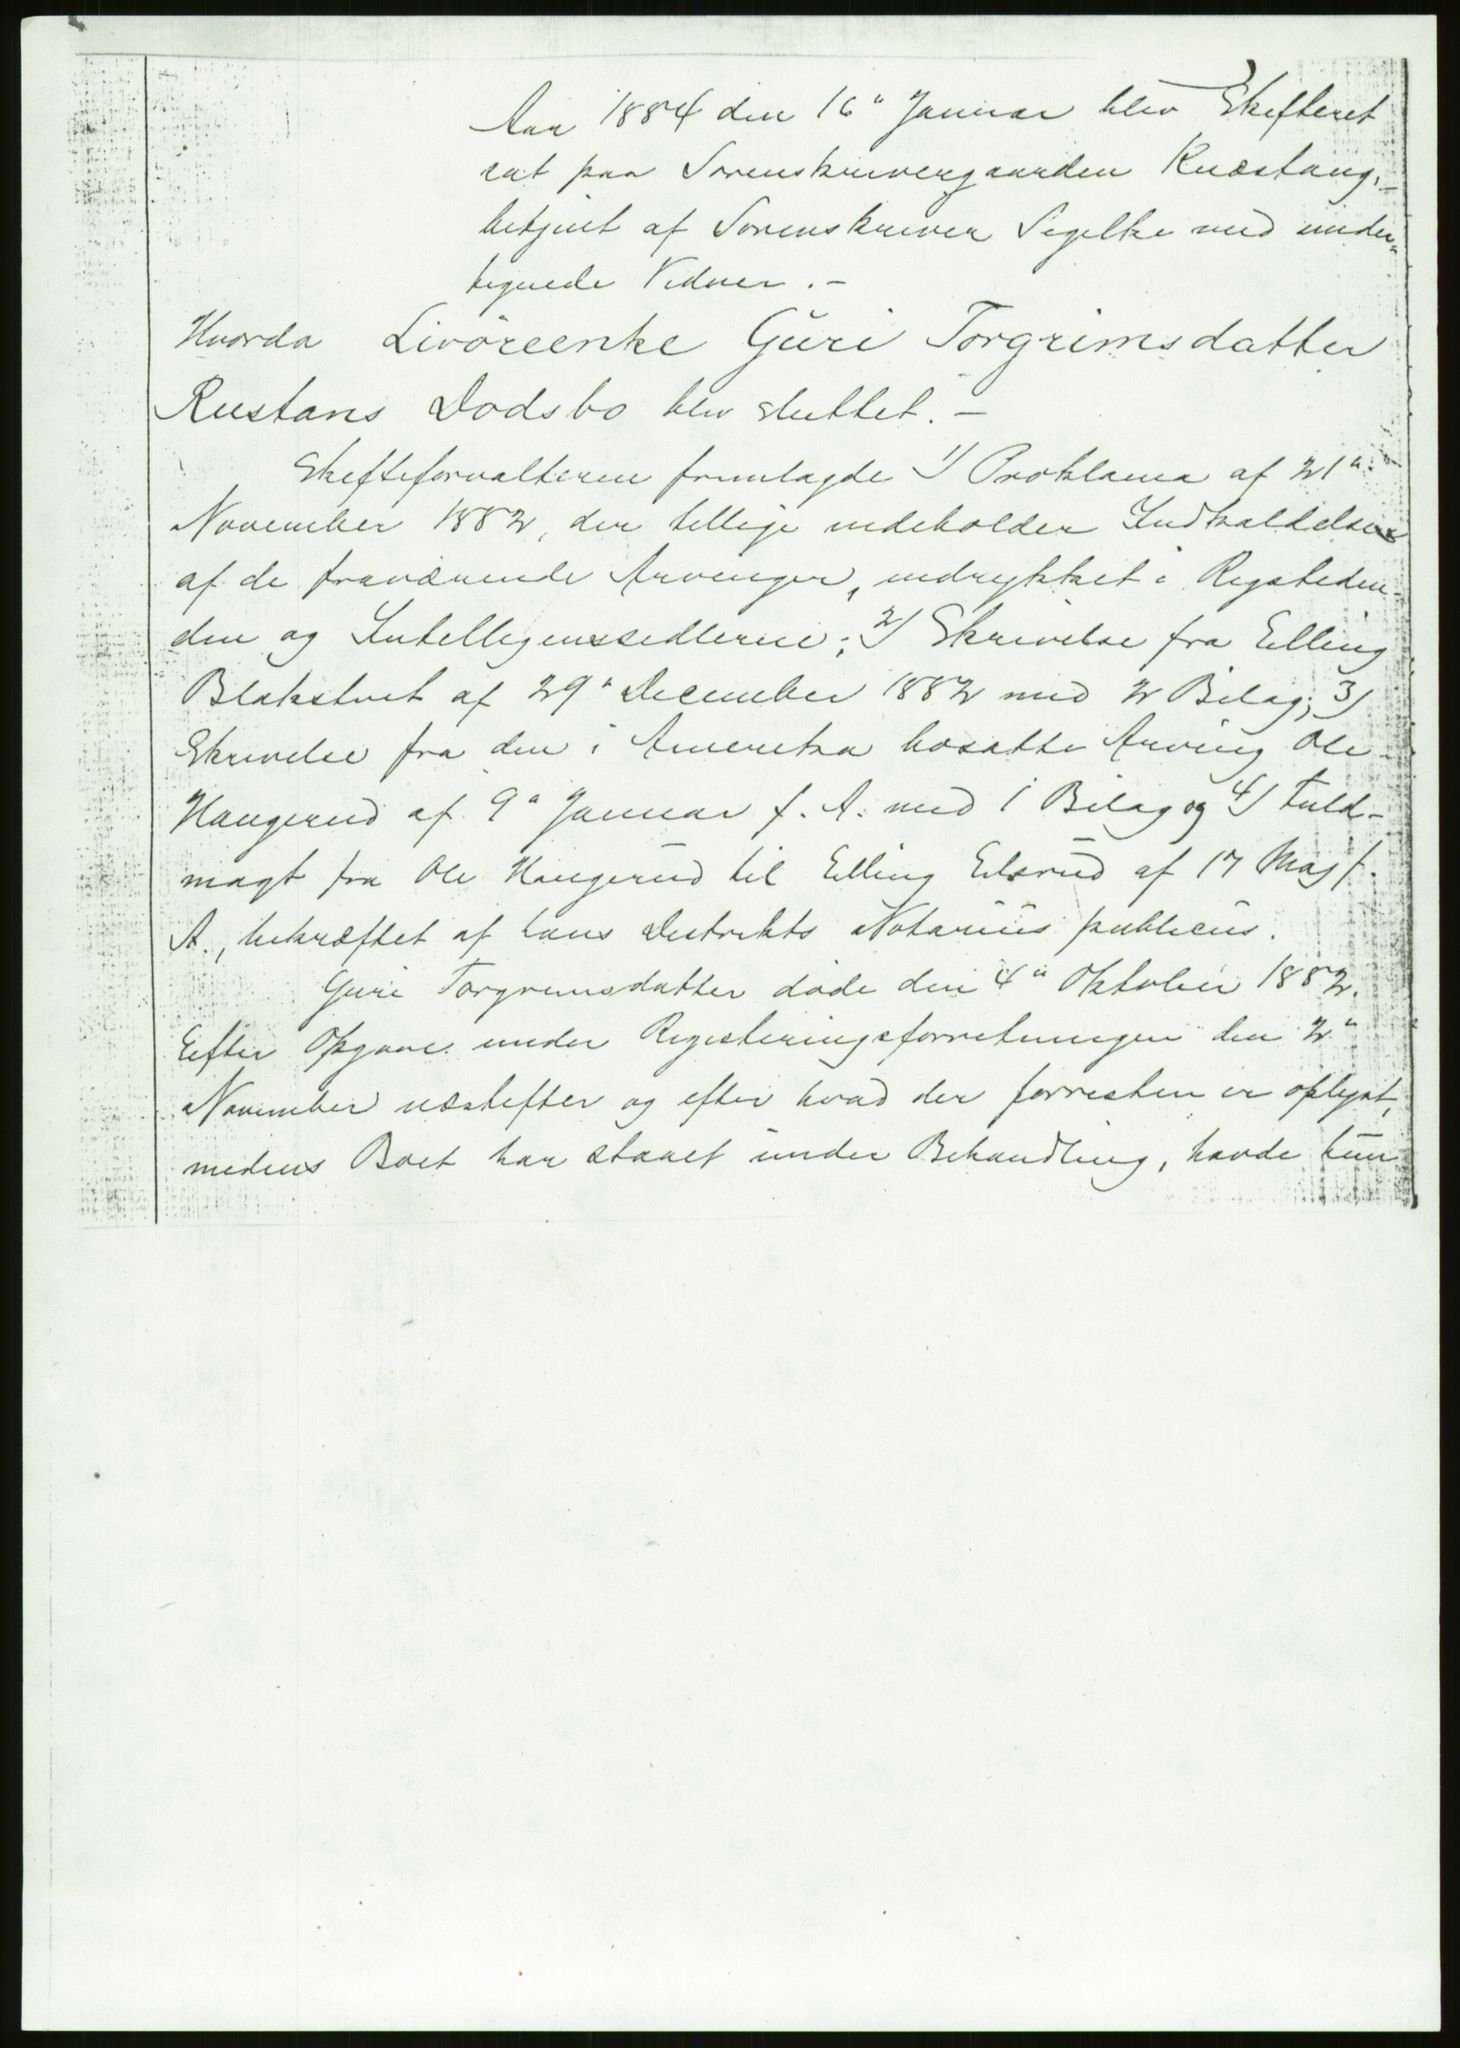 Aar 1884 den 16" Januar blev Skifteret
sat paa Sorenskrivergaarden Knæstang,-
betjent af Sorenskriver Segelke med under-
tegnede Vidner.-
Hvorda Livöreenke Guri Torgrimsdatter
Rustans Dødsbo blev sluttet.-
Skifteforvalteren fremlagde 1/ Proklama af 21"
November 1882, der tillige indeholder Indkaldelse
af de fraværende Arvinger, indrykket i Rigstiden-
den og Intelligenssedlerne; 2/ Skrivelse fra Elling
Blakstvet af 29" December 1882 med 2 Bilag; 3/
Skrivelse fra den i Amerika bosatte Arving Ole
Haugerud af 9" Januar f. A. med 1 Bilag og 4/ Fuld-
magt fra Ole Haugerud til Elling Elsrud af 17 Maj f.
A., bekræftet af hans Distrikts Notarius publicus.
Guri Torgrimsdatter døde den 4" Oktober 1882.
Efter Opgave under Registeringsforretningen den 2"
November næstefter og efter hvad der forresten er oplyst,
medens Boet har staaet under Behandling, havde hun